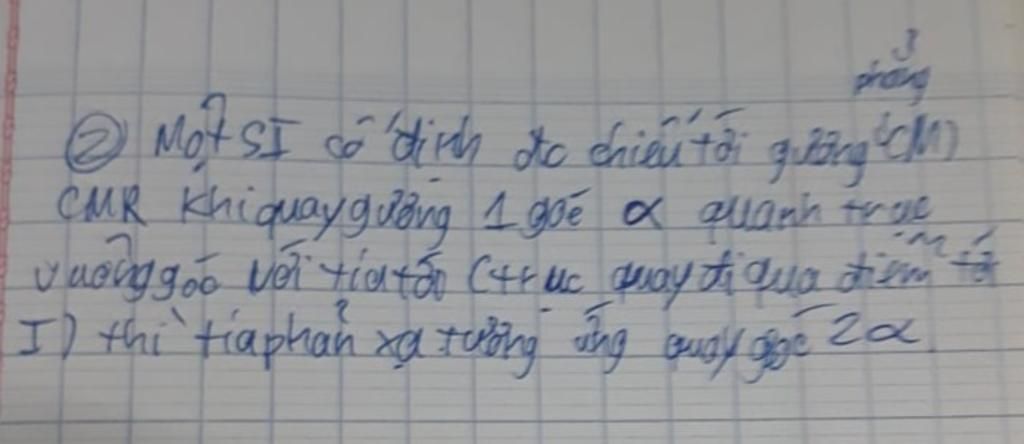 3
phẳng
② Một SI cố định đc chiếu tới gương (M)
CMR khi quay gương 1 góc α quanh trục
vuông góc với tia tới (trục quay đi qua điểm tới
I) thì tia phản xạ tương ứng quay góc 2α